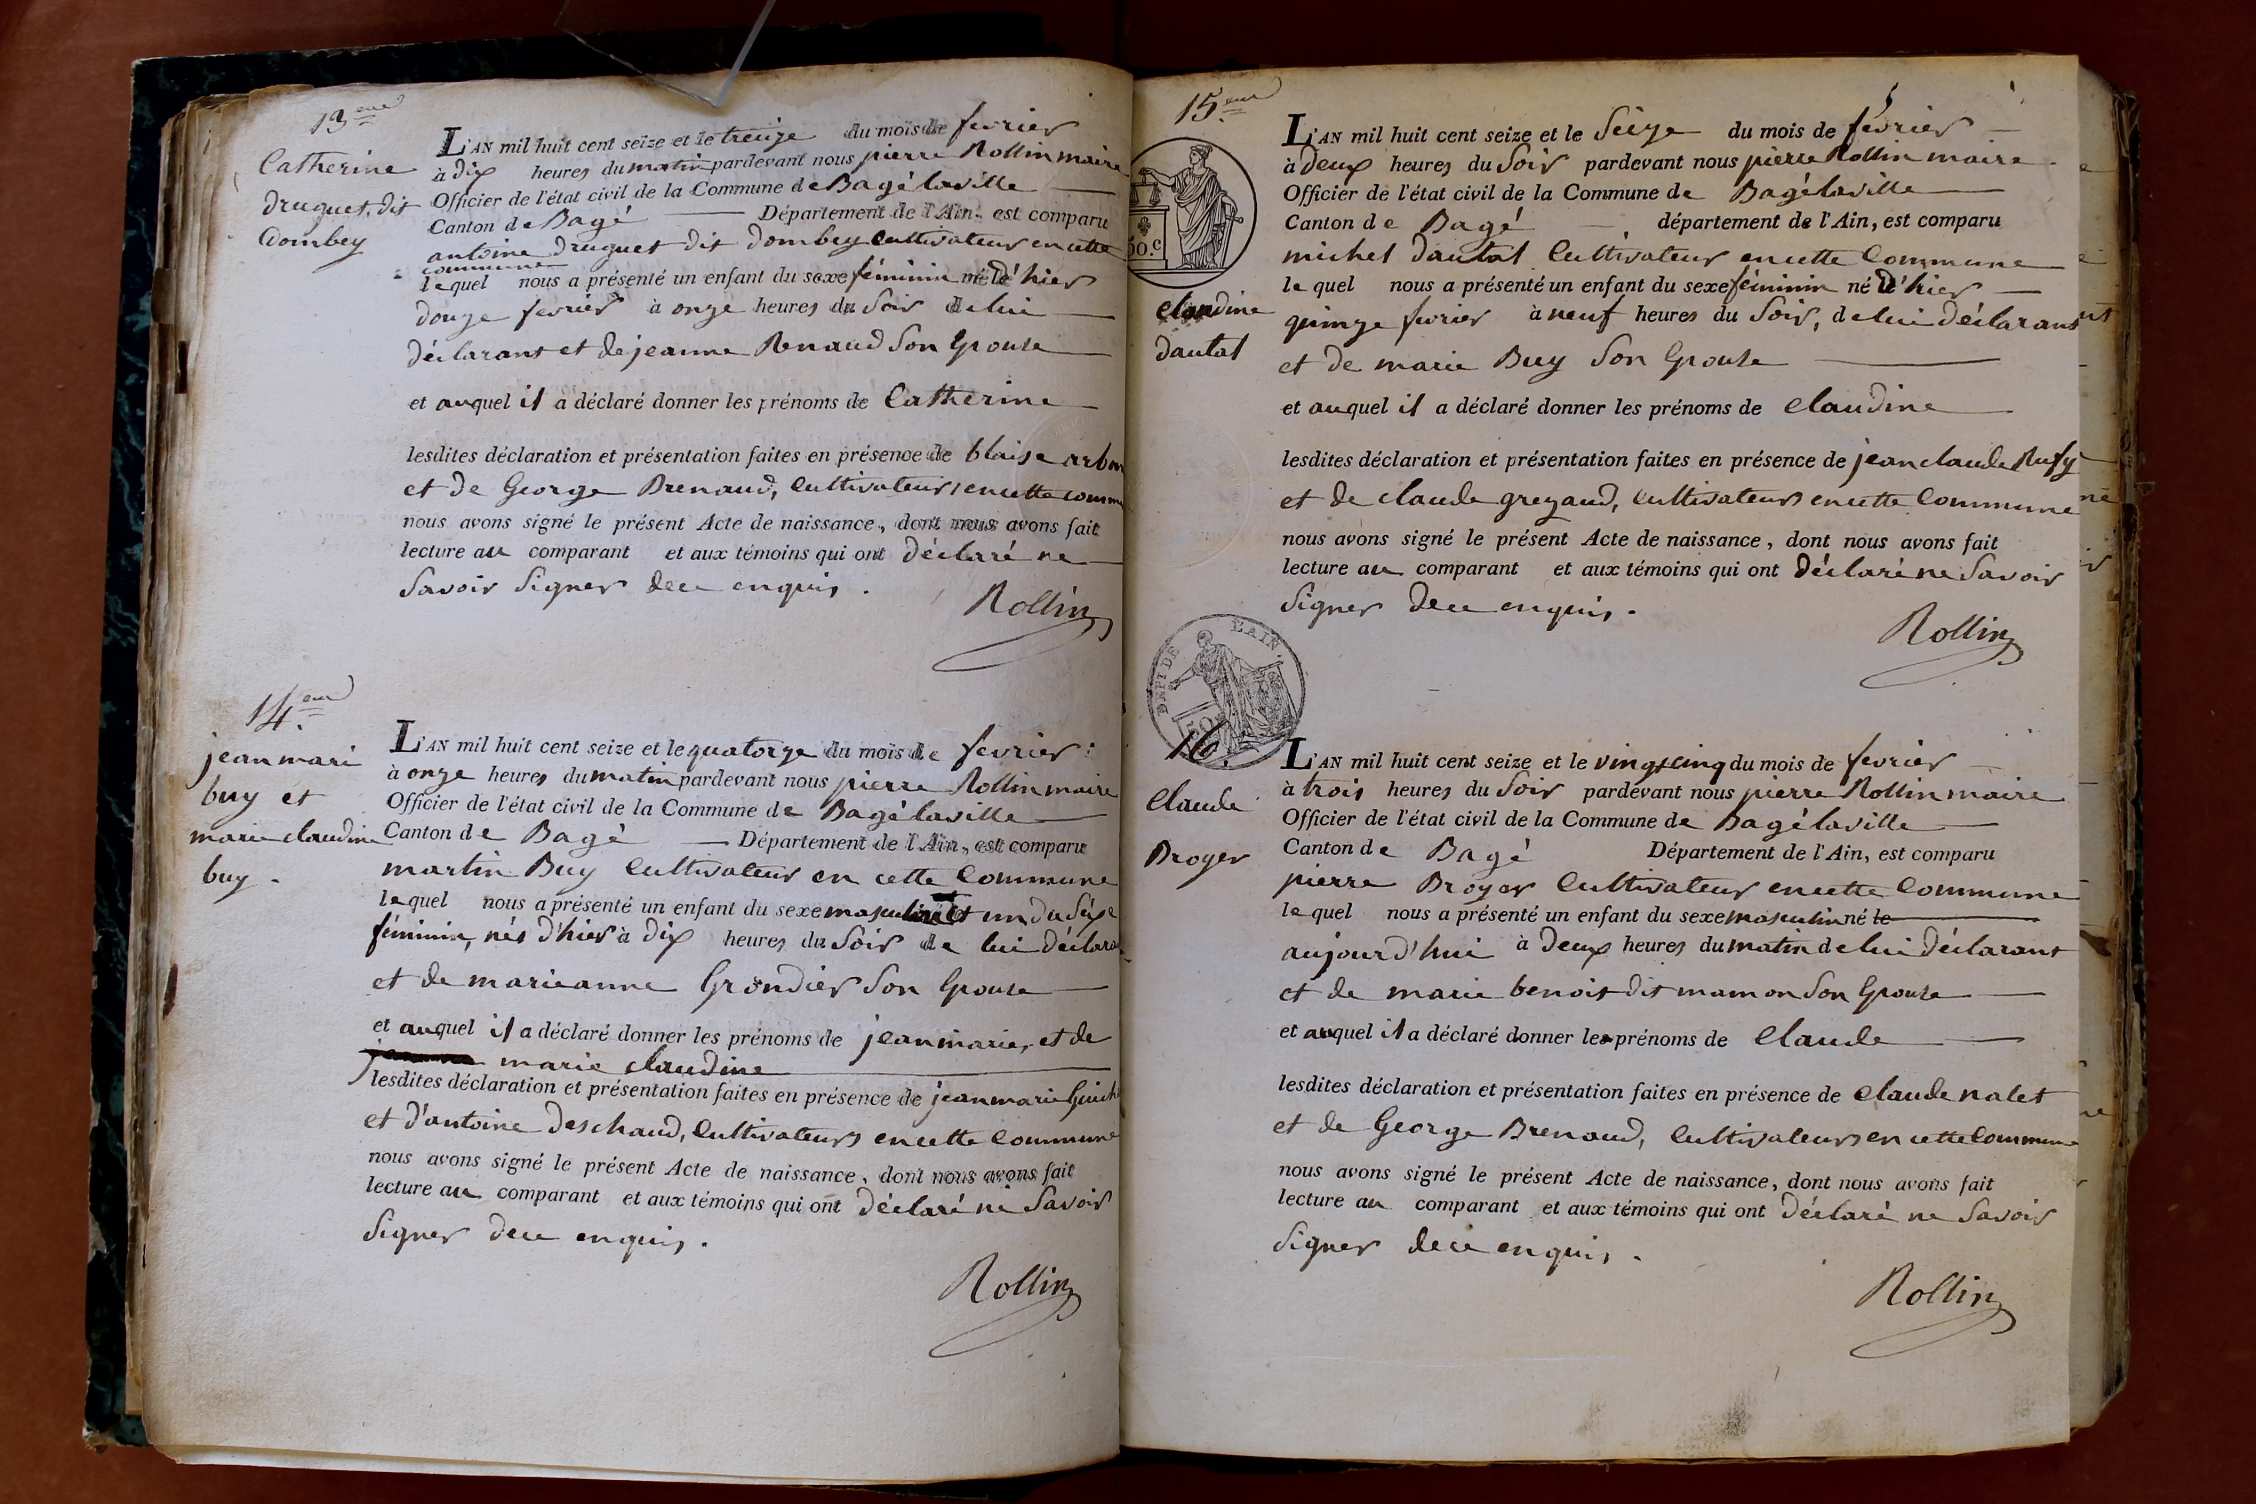 13.eme
Catherine
druguet, dit
dombey
L'AN mil huit cent seize et le treize du mois de fevrier
à dix heures du matin pardevant nous pierre Rollin maire
Officier de l'état civil de la Commune de Bagé laville
Canton de Bagé Département de l'Ain, est comparu
antoine druguet dit dombey cultivateur en cette
commune
lequel nous a présenté un enfant du sexe féminin né d'hier
douze fevrier à onze heures du Soir de lui
déclarant et de jeanne Renaud Son Epouse
et auquel il a déclaré donner les prénoms de Catherine
lesdites déclaration et présentation faites en présence de blaise
et de George Brenaud, Cultivateurs en cette
nous avons signé le présent Acte de naissance, dont nous avons fait
lecture au comparant et aux témoins qui ont déclaré ne
Savoir Signer de ce enquis.
Rollin
14.eme
jean mari
buy et
marie claudine
buy.
L'AN mil huit cent seize et le quatorze du mois de fevrier
à onze heures du matin pardevant nous pierre Rollin maire
Officier de l'état civil de la Commune de Bagé laville
Canton de Bagé Département de l'Ain, est comparu
martin Buy Cultivateur en cette Commune
lequel nous a présenté un enfant du sexe masculin et un du Sexe
féminin, nés d'hier à dix heures du Soir de lui
et de marieanne Grondier Son Epouse
et auquel il a déclaré donner les prénoms de jean marie, et de
marie claudine
lesdites déclaration et présentation faites en présence de jean marie
et d'antoine Deschaud, Cultivateurs en cette Commune
nous avons signé le présent Acte de naissance, dont nous avons fait
lecture au comparant et aux témoins qui ont déclaré ne Savoir
Signer de ce enquis.
Rollin
15.eme
50.c
claudine
dautal
L'AN mil huit cent seize et le Seize du mois de fevrier
à deux heures du Soir pardevant nous pierre Rollin maire
Officier de l'état civil de la Commune de Bagé laville
Canton de Bagé département de l'Ain, est comparu
michel dautal Cultivateur en cette Commune
lequel nous a présenté un enfant du sexe féminin né d'hier
quinze fevrier à neuf heures du Soir, de lui déclarant
et de marie Buy Son Epouse
et auquel il a déclaré donner les prénoms de claudine
lesdites déclaration et présentation faites en présence de jean claude Rufy
et de claude greyaud, Cultivateurs en cette Commune
nous avons signé le présent Acte de naissance, dont nous avons fait
lecture au comparant et aux témoins qui ont déclaré ne Savoir
Signer de ce enquis.
Rollin
DEPT DE L'AIN.
50
16.
Claude
Broyer
L'AN mil huit cent seize et le vingt cinq du mois de fevrier
à trois heures du Soir pardevant nous pierre Rollin maire
Officier de l'état civil de la Commune de Bagé laville
Canton de Bagé Département de l'Ain, est comparu
pierre Broyer Cultivateur en cette Commune
lequel nous a présenté un enfant du sexe masculin né le
aujourd'hui à deux heures du matin de lui déclarant
et de marie benoit dit mamon Son Epouse
et auquel il a déclaré donner les prénoms de Claude
lesdites déclaration et présentation faites en présence de claude nalet
et de George Brenaud, Cultivateurs en cette Commune
nous avons signé le présent Acte de naissance, dont nous avons fait
lecture au comparant et aux témoins qui ont déclaré ne Savoir
Signer de ce enquis.
Rollin